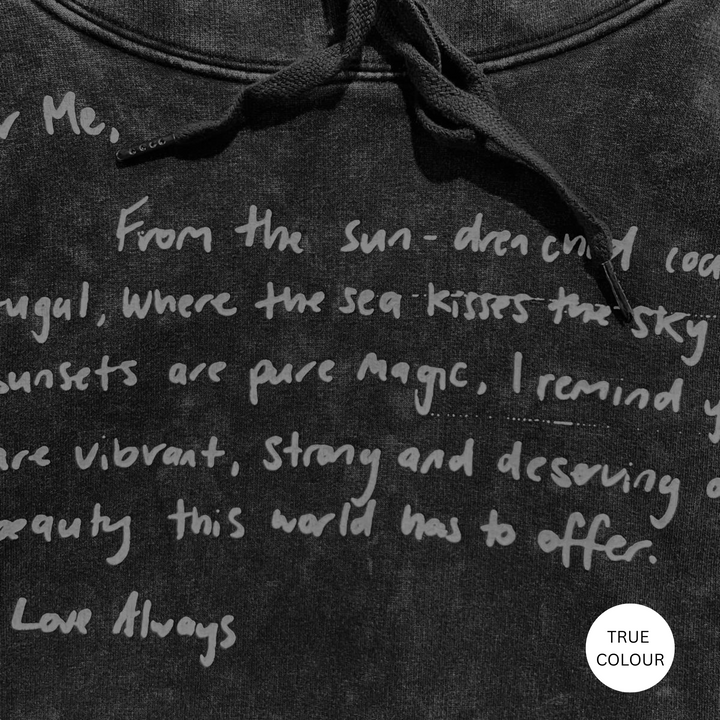 r Me,
From the sun-drenched coa
tugal, where the sea kisses the sky
sunsets are pure magic, I remind y
are vibrant, strong and deserving o
beauty this world has to offer.
Love Always
TRUE
COLOUR